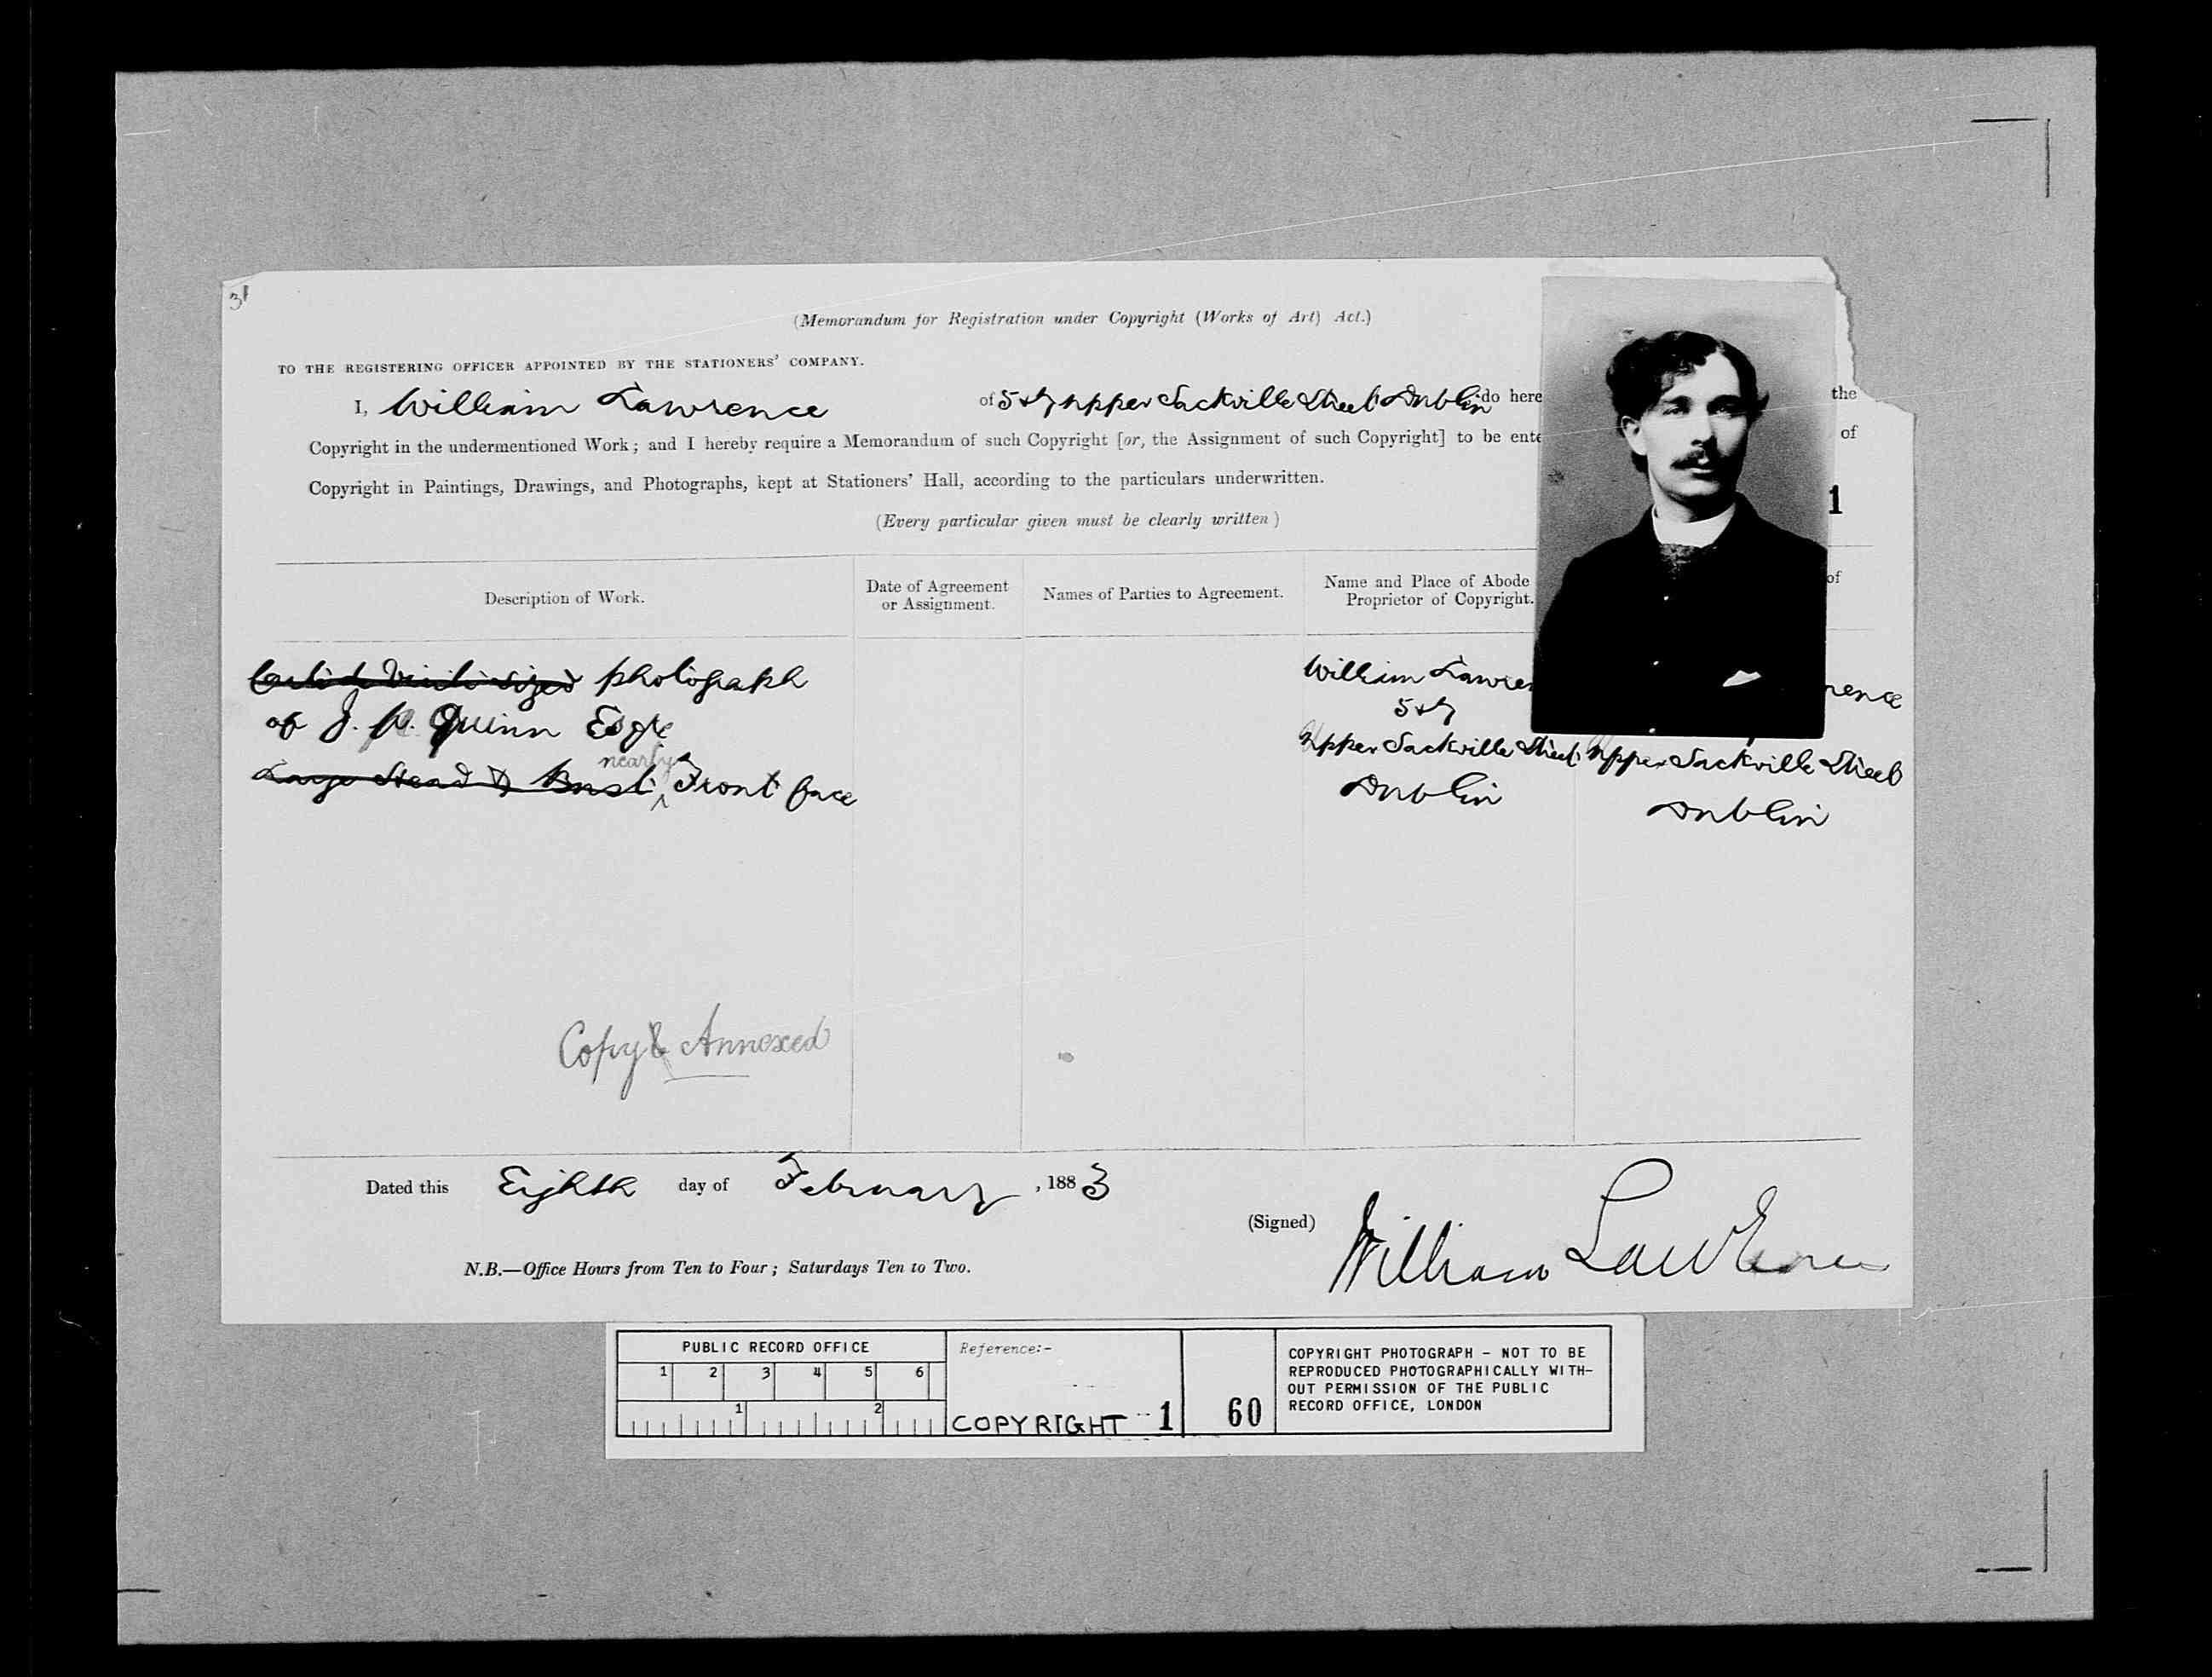 31
(Memorandum for Registration under Copyright (Works of Art) Act.)
TO THE REGISTERING OFFICER APPOINTED BY THE STATIONERS' COMPANY.
I, William Lawrence of 5 & 7 Upper Sackville Street Dublin do here the
Copyright in the undermentioned Work; and I hereby require a Memorandum of such Copyright [or, the Assignment of such Copyright] to be ente of
Copyright in Paintings, Drawings, and Photographs, kept at Stationers' Hall, according to the particulars underwritten.
1
(Every particular given must be clearly written)
Description of Work.
Date of Agreement
or Assignment.
Names of Parties to Agreement.
Name and Place of Abode
Proprietor of Copyright.
of
Carte de Visite sized photograph
of J. P. Quinn Esqre
Large Head & Bust nearly Front face
William Lawren
5 & 7
Upper Sackville Street
Dublin
rence
Upper Sackville Street
Dublin
Copy Annexed
Dated this Eighth day of February, 1883
(Signed) William Lawrence
N.B.—Office Hours from Ten to Four; Saturdays Ten to Two.
PUBLIC RECORD OFFICE
1 2 3 4 5 6
1 2
Reference:-
COPYRIGHT 1
60
COPYRIGHT PHOTOGRAPH - NOT TO BE
REPRODUCED PHOTOGRAPHICALLY WITH-
OUT PERMISSION OF THE PUBLIC
RECORD OFFICE, LONDON